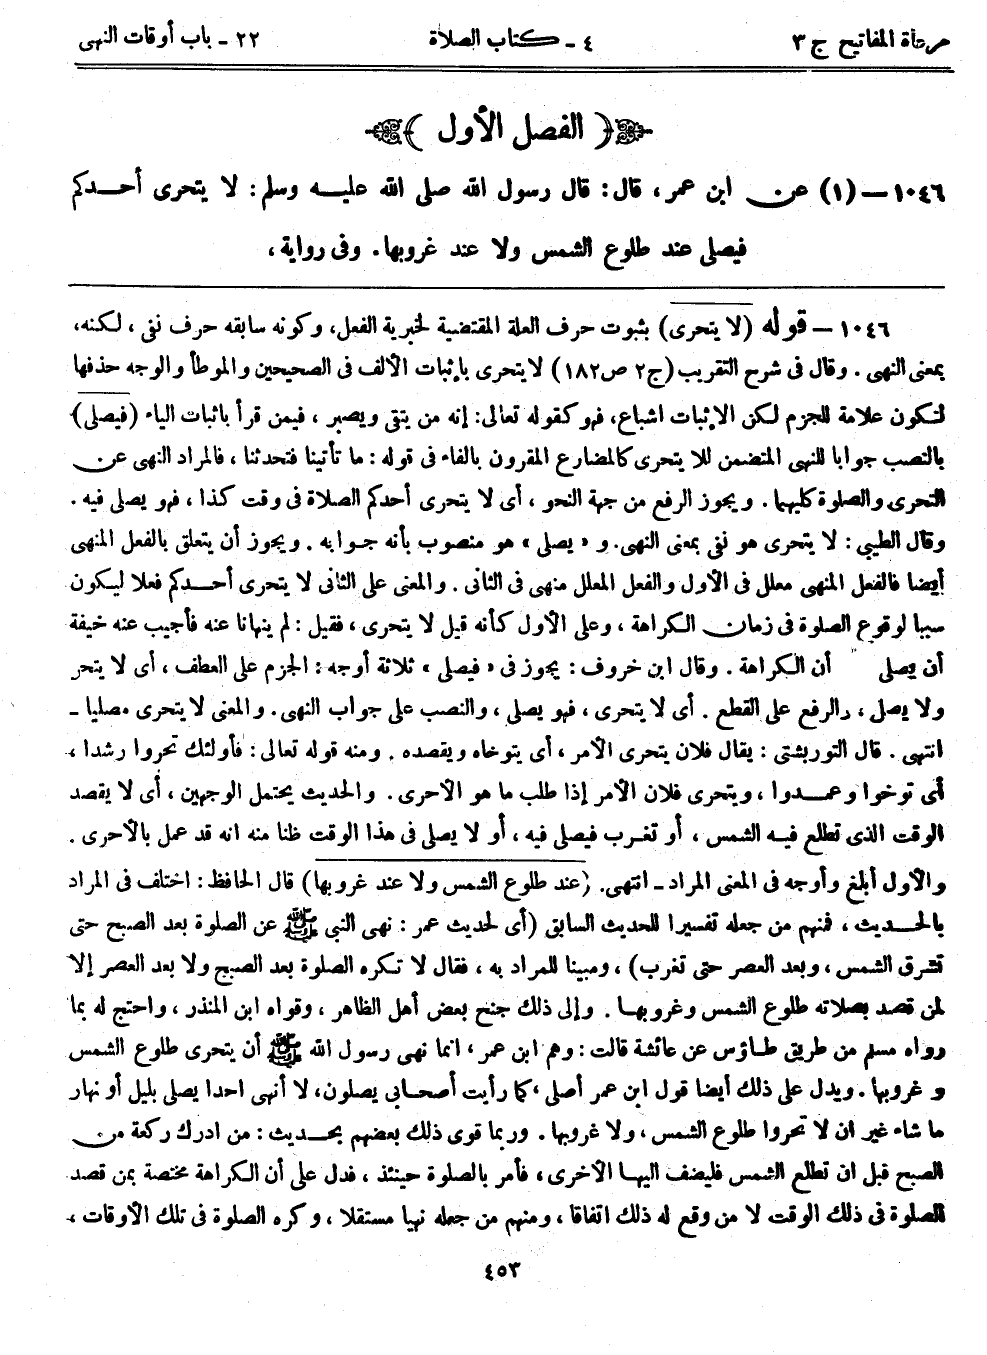 مرعاة المفاتيح ج ٣ ٤ ـ كتاب الصلاة ٢٢ ـ باب أوقات النهى
( الفصل الأول )
١٠٤٦ – (١) عن ابن عمر، قال: قال رسول الله صلى الله عليه وسلم: لا يتحرى أحدكم
فيصلى عند طلوع الشمس ولا عند غروبها. وفى رواية،
١٠٤٦ – قوله (لا يتحرى) بثبوت حرف العلة المقتضية لخبرية الفعل، وكونه سابقه حرف نفى، لكنه،
بمعنى النهى. وقال فى شرح التقريب (ج٢ ص١٨٢) لا يتحرى بإثبات الألف فى الصحيحين والموطأ والوجه حذفها
لتكون علامة للجزم لكن الإثبات اشباع، فهو كقوله تعالى: إنه من يتقى ويصبر، فيمن قرأ باثبات الياء (فيصلى)
بالنصب جوابا للنهى المتضمن للا يتحرى كالمضارع المقرون بالفاء فى قوله: ما تأتينا فتحدثنا، فالمراد النهى عن
التحرى والصلوة كليهما. ويجوز الرفع من جهة النحو، أى لا يتحرى أحدكم الصلاة فى وقت كذا، فهو يصلى فيه.
وقال الطيبى: لا يتحرى هو نفى بمعنى النهى. و «يصلى» هو منصوب بأنه جوابه. ويجوز أن يتعلق بالفعل المنهى
أيضا فالفعل المنهى معلل فى الأول والفعل المعلل منهى فى الثانى. والمعنى على الثانى لا يتحرى أحدكم فعلا ليكون
سببا لوقوع الصلوة فى زمان الكراهة، وعلى الأول كأنه قيل لا يتحرى، فقيل: لم ينهانا عنه فأجيب عنه خيفة
أن يصلى أن الكراهة. وقال ابن خروف: يجوز فى «فيصلى» ثلاثة أوجه: الجزم على العطف، أى لا يتحر
ولا يصل، والرفع على القطع. أى لا يتحرى، فهو يصلى، والنصب على جواب النهى. والمعنى لا يتحرى مصليا ـ
انتهى. قال التوربشتى: يقال فلان يتحرى الأمر، أى يتوخاه ويقصده. ومنه قوله تعالى: فأولئك تحروا رشدا،
أى توخوا وعمدوا، ويتحرى فلان الأمر إذا طلب ما هو الأحرى. والحديث يحتمل الوجهين، أى لا يقصد
الوقت الذى تطلع فيه الشمس، أو تغرب فيصلى فيه، أو لا يصلى فى هذا الوقت ظنا منه انه قد عمل بالأحرى.
والأول أبلغ وأوجه فى المعنى المراد ـ انتهى. (عند طلوع الشمس ولا عند غروبها) قال الحافظ: اختلف فى المراد
بالحديث، فمنهم من جعله تفسيرا للحديث السابق (أى لحديث عمر: نهى النبى ﷺ عن الصلوة بعد الصبح حتى
تشرق الشمس، وبعد العصر حتى تغرب)، ومبينا للمراد به، فقال لا تكره الصلوة بعد الصبح ولا بعد العصر إلا
لمن قصد بصلاته طلوع الشمس وغروبها. وإلى ذلك جنح بعض أهل الظاهر، وقواه ابن المنذر، واحتج له بما
رواه مسلم من طريق طاؤس عن عائشة قالت: وهم ابن عمر، انما نهى رسول الله ﷺ أن يتحرى طلوع الشمس
و غروبها. ويدل على ذلك أيضا قول ابن عمر أصلى، كما رأيت أصحابى يصلون، لا أنهى احدا يصلى بليل أو نهار
ما شاء غير ان لا تحروا طلوع الشمس، ولا غروبها. وربما قوى ذلك بعضهم بحديث: من ادرك ركعة من
الصبح قبل ان تطلع الشمس فليضف اليها الأخرى، فأمر بالصلوة حينئذ، فدل على أن الكراهة مختصة بمن قصد
الصلوة فى ذلك الوقت لا من وقع له ذلك اتفاقا، ومنهم من جعله نهيا مستقلا، وكره الصلوة فى تلك الأوقات،
٤٥٣